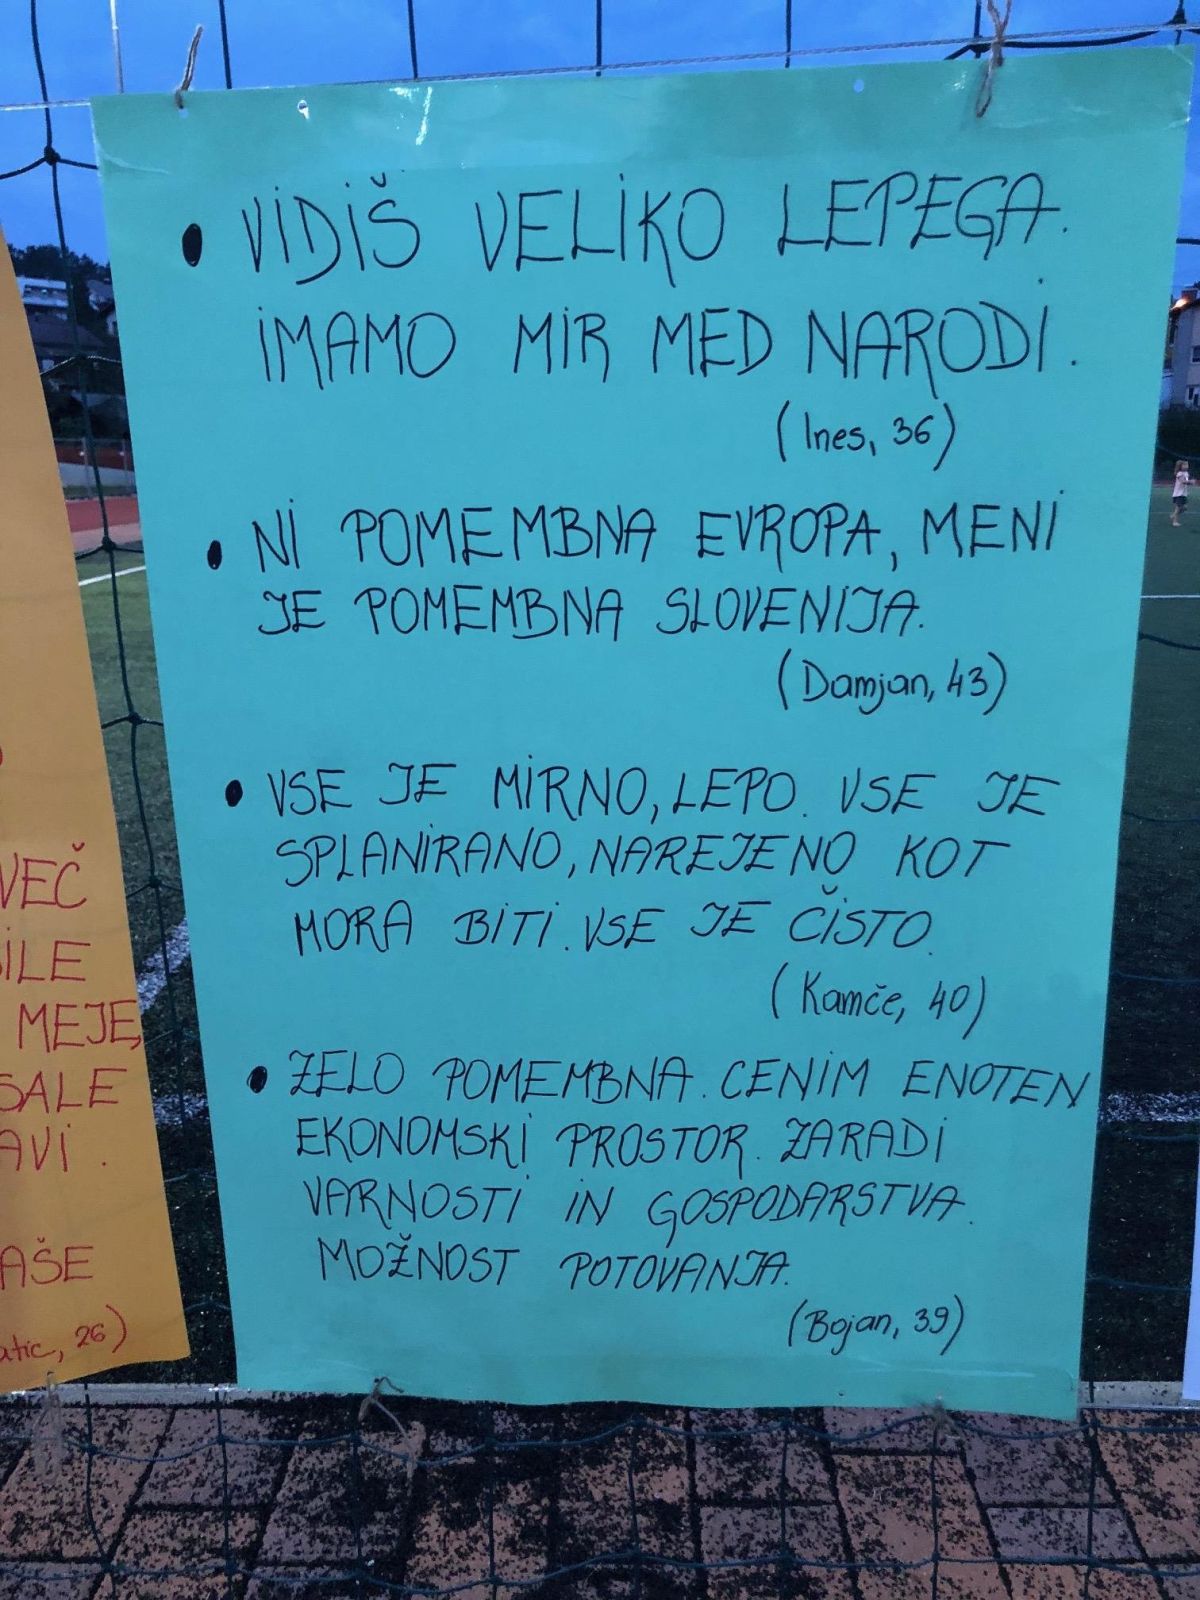 • VIDIŠ VELIKO LEPEGA.
IMAMO MIR MED NARODI.
(Ines, 36)
• NI POMEMBNA EVROPA, MENI
JE POMEMBNA SLOVENIJA.
(Damjan, 43)
• VSE JE MIRNO, LEPO. VSE JE
SPLANIRANO, NAREJENO KOT
MORA BITI. VSE JE ČISTO.
(Kamče, 40)
• ZELO POMEMBNA. CENIM ENOTEN
EKONOMSKI PROSTOR. ZARADI
VARNOSTI IN GOSPODARSTVA.
MOŽNOST POTOVANJA.
(Bojan, 39)
VEČ
MEJE,
26)